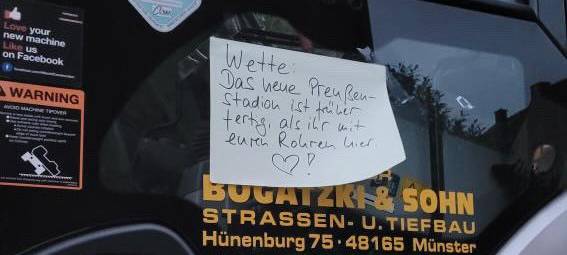 Love your
new machine
Like us
on Facebook
WARNING
AVOID MACHINE TIPOVER
Wette:
Das neue Preußen-
stadion ist früher
fertig, als ihr mit
euren Rohren hier.
♡!
BOGATZKI & SOHN
STRASSEN- U. TIEFBAU
Hünenburg 75 · 48165 Münster